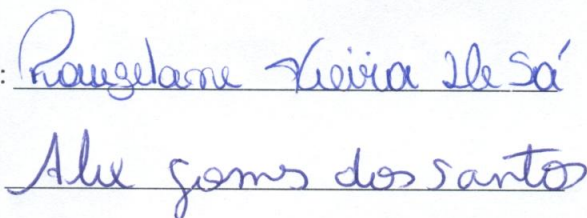 : Rougelane Vieira De Sá
Alex gomes dos santos